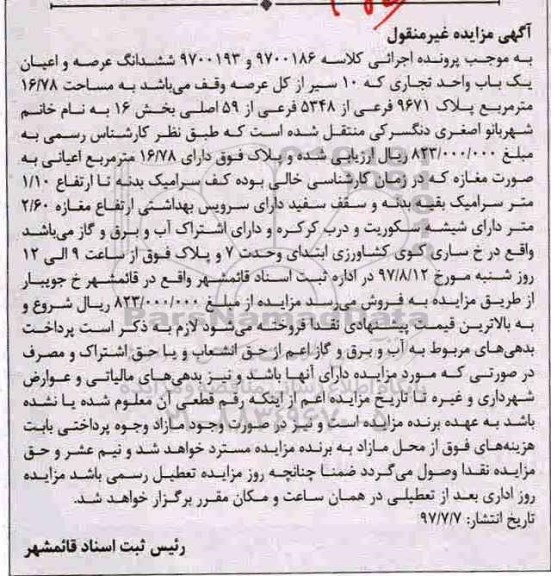 آگهی مزایده غیرمنقول
به موجب پرونده اجرائی کلاسه ۹۷۰۰۱۸۶ و ۹۷۰۰۱۹۳ ششدانگ عرصه و اعیان
یک باب واحد تجاری که ۱۰ سیر از کل عرصه وقف می‌باشد به مساحت ۱۶/۷۸
مترمربع پلاک ۹۶۷۱ فرعی از ۵۳۴۸ فرعی از ۵۹ اصلی بخش ۱۶ به نام خانم
شهربانو اصغری دنگسرکی منتقل شده است که طبق نظر کارشناس رسمی به
مبلغ ۸۲۳/۰۰۰/۰۰۰ ریال ارزیابی شده و پلاک فوق دارای ۱۶/۷۸ مترمربع اعیانی به
صورت مغازه که در زمان کارشناسی خالی بوده کف سرامیک بدنه تا ارتفاع ۱/۱۰
متر سرامیک بقیه بدنه و سقف سفید دارای سرویس بهداشتی ارتفاع مغازه ۲/۶۰
متر دارای شیشه سکوریت و درب کرکره و دارای اشتراک آب و برق و گاز می‌باشد
واقع در خ ساری کوی کشاورزی ابتدای وحدت ۷ و پلاک فوق از ساعت ۹ الی ۱۲
روز شنبه مورخ ۹۷/۸/۱۲ در اداره ثبت اسناد قائمشهر واقع در قائمشهر خ جویبار
از طریق مزایده به فروش می‌رسد مزایده از مبلغ ۸۲۳/۰۰۰/۰۰۰ ریال شروع و
به بالاترین قیمت پیشنهادی نقدا فروخته می‌شود لازم به ذکر است پرداخت
بدهی‌های مربوط به آب و برق و گاز اعم از حق انشعاب و یا حق اشتراک و مصرف
در صورتی که مورد مزایده دارای آنها باشد و نیز بدهی‌های مالیاتی و عوارض
شهرداری و غیره تا تاریخ مزایده اعم از اینکه رقم قطعی آن معلوم شده یا نشده
باشد به عهده برنده مزایده است و نیز در صورت وجود مازاد وجوه پرداختی بابت
هزینه‌های فوق از محل مازاد به برنده مزایده مسترد خواهد شد و نیم عشر و حق
مزایده نقدا وصول می‌گردد ضمنا چنانچه روز مزایده تعطیل رسمی باشد مزایده
روز اداری بعد از تعطیلی در همان ساعت و مکان مقرر برگزار خواهد شد.
تاریخ انتشار: ۹۷/۷/۷
رئیس ثبت اسناد قائمشهر